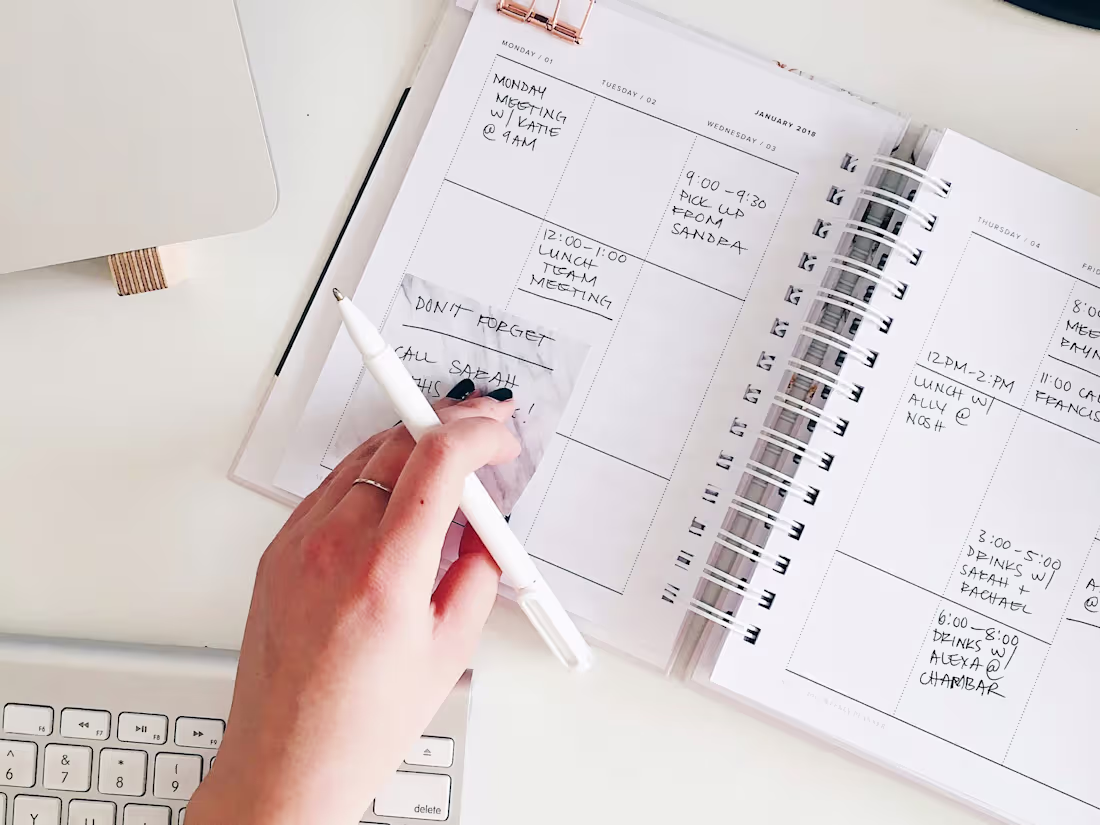 MONDAY / 01
MONDAY
MEETING
W/ KATIE
@ 9AM
TUESDAY / 02
12:00-1:00
LUNCH
TEAM
MEETING
JANUARY 2018
WEDNESDAY / 03
9:00-9:30
PICK UP
FROM
SANDRA
DON'T FORGET
CALL SARAH
THIS
!
THURSDAY / 04
12PM-2:PM
LUNCH W/
ALLY @
NOSH
FRI
8:00
MEE
11:00 CAL
FRANCIS
3:00-5:00
DRINKS W/
SARAH +
RACHAEL
6:00-8:00
DRINKS W/
ALEXA @
CHAMBAR
A
@
F6
F7
F8
F9
^
6
&
7
*
8
(
9
Y
U
delete